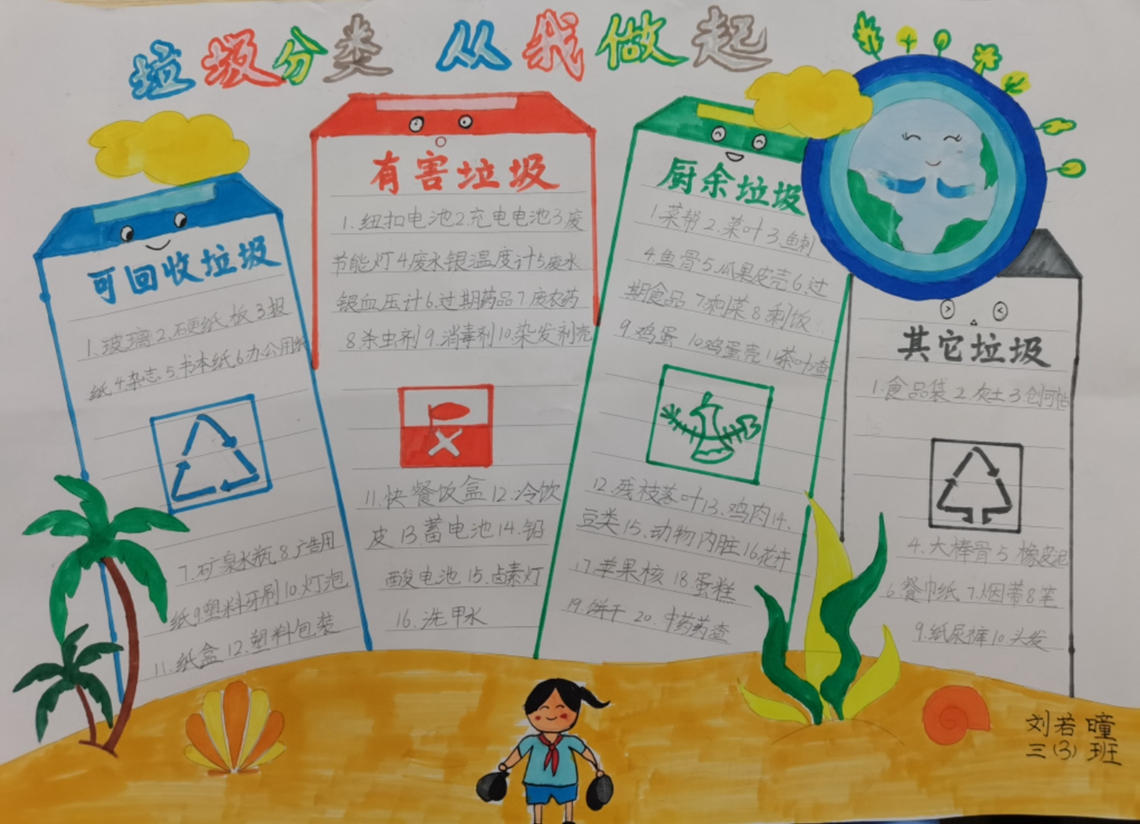 垃圾分类 从我做起
可回收垃圾
1.玻璃2.硬纸板3.报
纸4.杂志.5书本纸6.办公用纸
7.矿泉水瓶.8.广告用
纸9塑料牙刷10.灯泡
11.纸盒12.塑料包装
有害垃圾
1.纽扣电池2.充电电池3废
节能灯4废水银温度计5废水
银血压计6.过期药品7废农药
8杀虫剂9.消毒剂10.染发剂壳
11.快餐饭盒12.冷饮
皮13蓄电池14.铅
酸电池15.卤素灯
16.洗甲水
厨余垃圾
1.菜帮2.菜叶3.鱼刺
4鱼骨5.瓜果皮壳6.过
期食品7剩菜8剩饭
9鸡蛋10鸡蛋壳11茶叶渣
12.残枝落叶13.鸡肉14.
豆类15.动物内脏16花卉
17.苹果核18蛋糕
19.饼干20.中药药渣
其它垃圾
1.食品袋2灰土3创可贴
4.大棒骨5橡皮泥
6.餐巾纸7.烟蒂8笔
9.纸尿裤10头发
刘若瞳
三(3)班